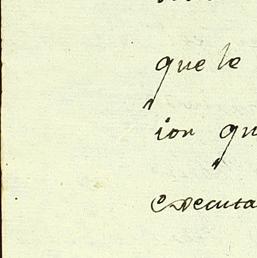 que le
ion qu
executa